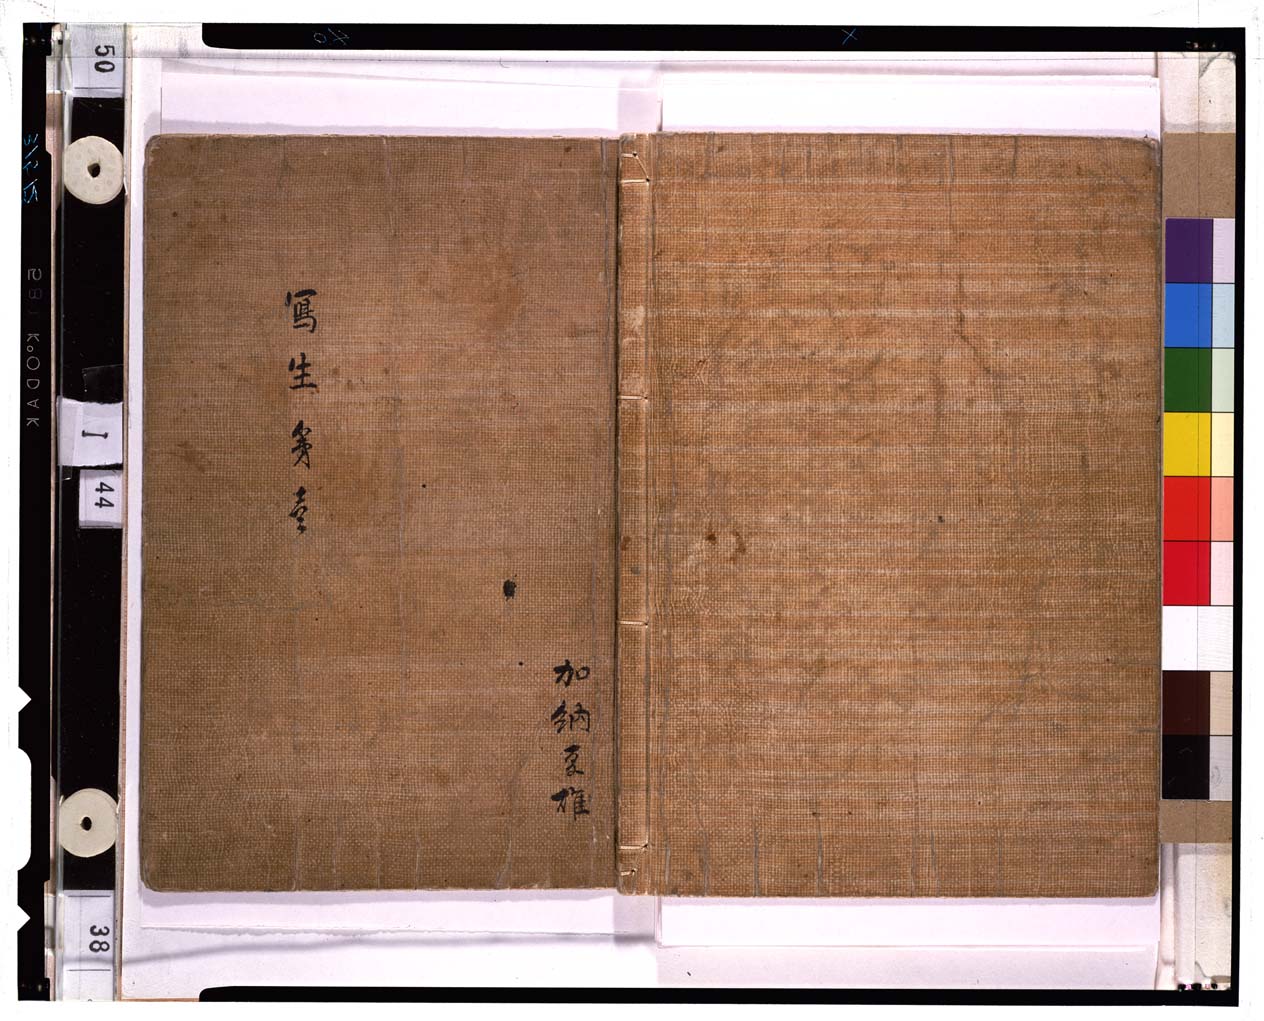 50
I
44
38
冩生第壹
加納夏雄
KODAK